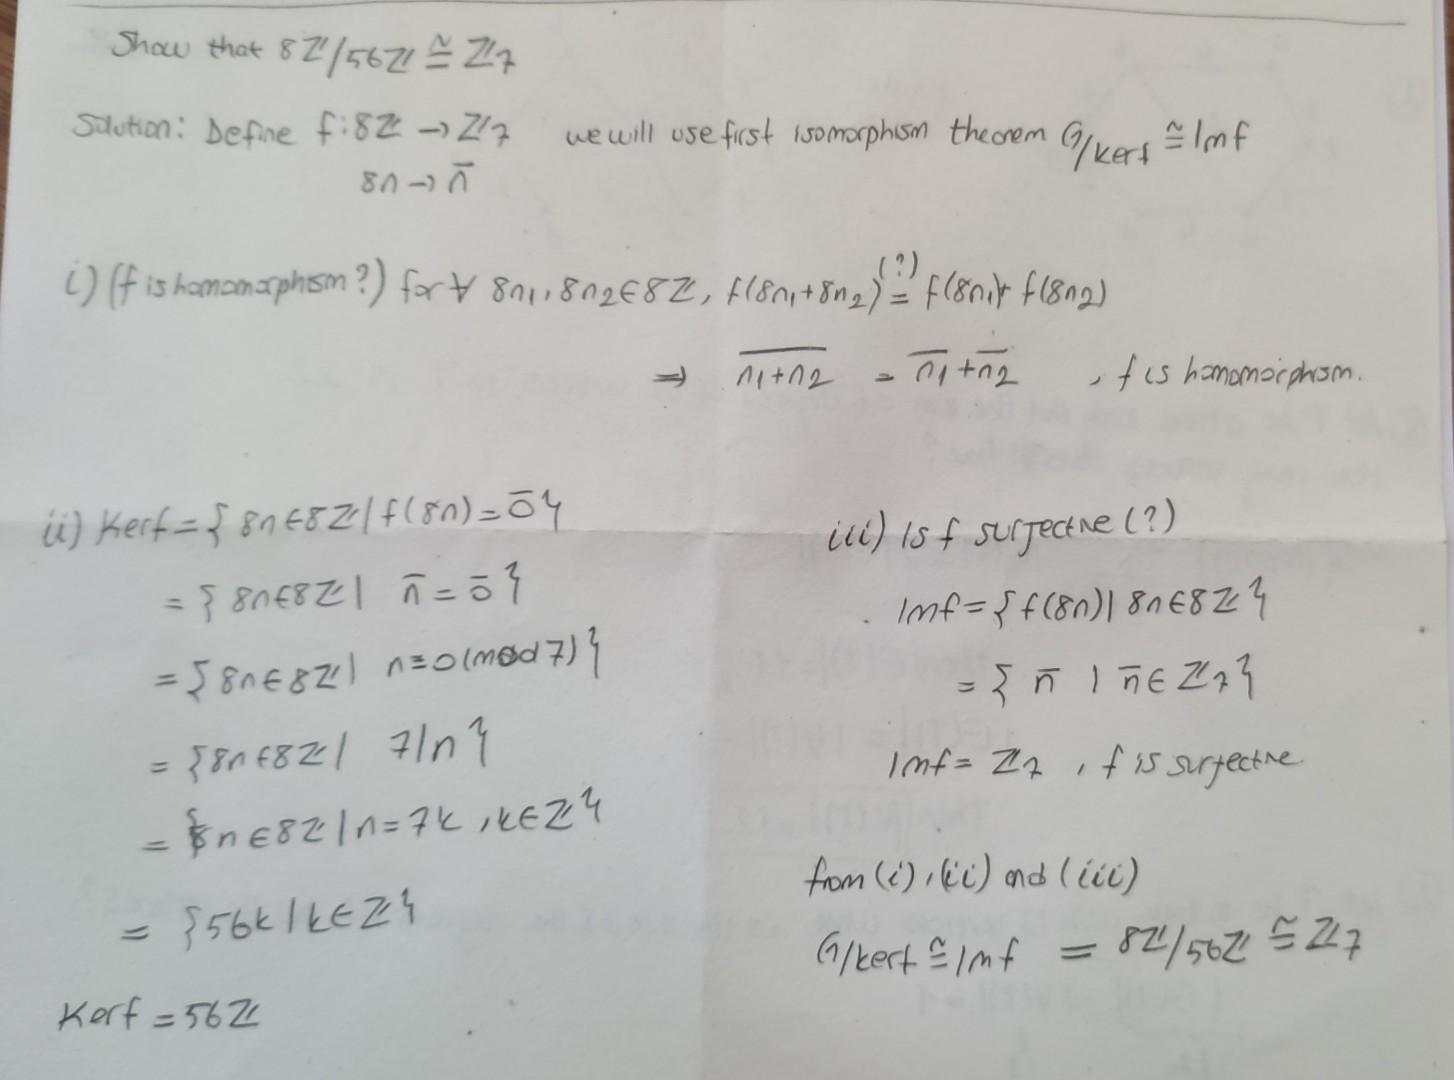 Show that 8ℤ/56ℤ ≅ ℤ7
Solution: Define f: 8ℤ → ℤ7 we will use first isomorphism theorem G/kerf ≅ Imf
8n → n̄
i) (f is homomorphism?) for ∀ 8n1, 8n2 ∈ 8ℤ, f(8n1+8n2) =(?) f(8n1)+ f(8n2)
⇒ \overline{n1+n2} = \overline{n1} + \overline{n2} , f is homomorphism.
ii) Kerf = { 8n ∈ 8ℤ | f(8n) = 0̄ }
= { 8n ∈ 8ℤ | n̄ = 0̄ }
= { 8n ∈ 8ℤ | n ≡ 0 (mod 7) }
= { 8n ∈ 8ℤ | 7|n }
= { 8n ∈ 8ℤ | n = 7k , k ∈ ℤ }
= { 56k | k ∈ ℤ }
Kerf = 56ℤ
iii) Is f surjective (?)
Imf = { f(8n) | 8n ∈ 8ℤ }
= { n̄ | n̄ ∈ ℤ7 }
Imf = ℤ7 , f is surjective.
from (i), (ii) and (iii)
G/kerf ≅ Imf = 8ℤ/56ℤ ≅ ℤ7